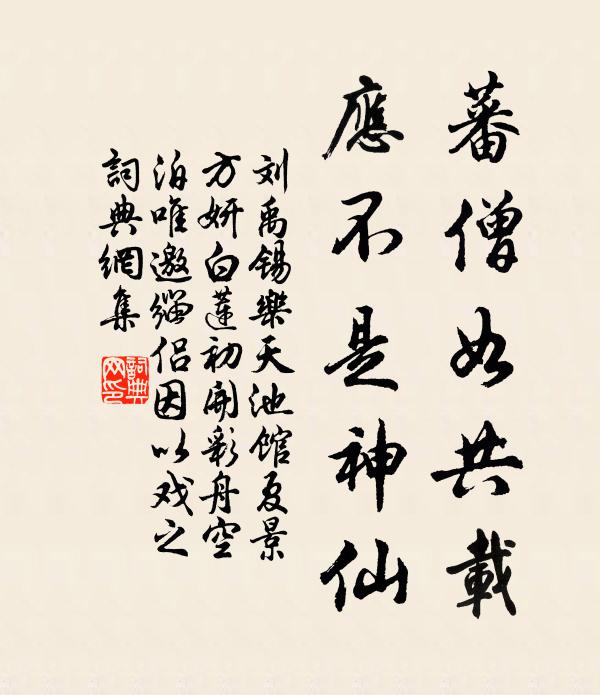 蕃僧如共載
應不是神仙
刘禹锡樂天池馆夏景
方妍白蓮初開彩舟空
泊唯邀缁侣因以戏之
詞典網集
詞典网印